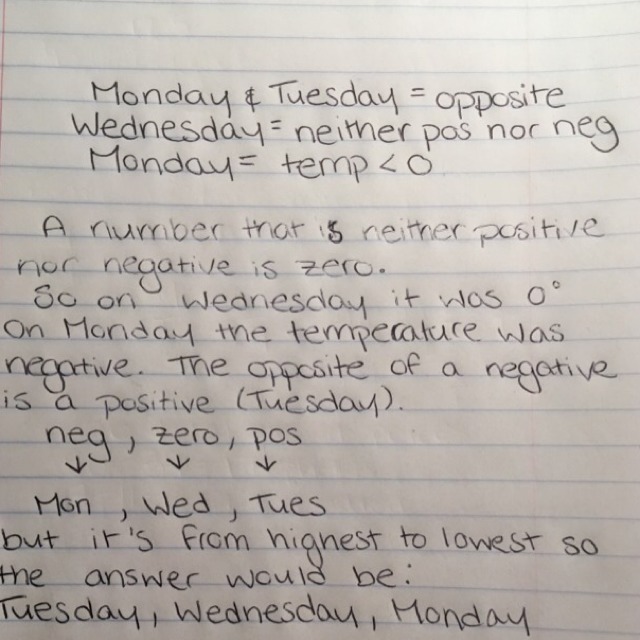 Monday & Tuesday = opposite
Wednesday = neither pos nor neg
Monday = temp < 0
A number that is neither positive
nor negative is zero.
So on Wednesday it was 0°
On Monday the temperature was
negative. The opposite of a negative
is a positive (Tuesday).
neg, zero, pos
↓ ↓ ↓
Mon, Wed, Tues
but it's from highest to lowest so
the answer would be:
Tuesday, Wednesday, Monday